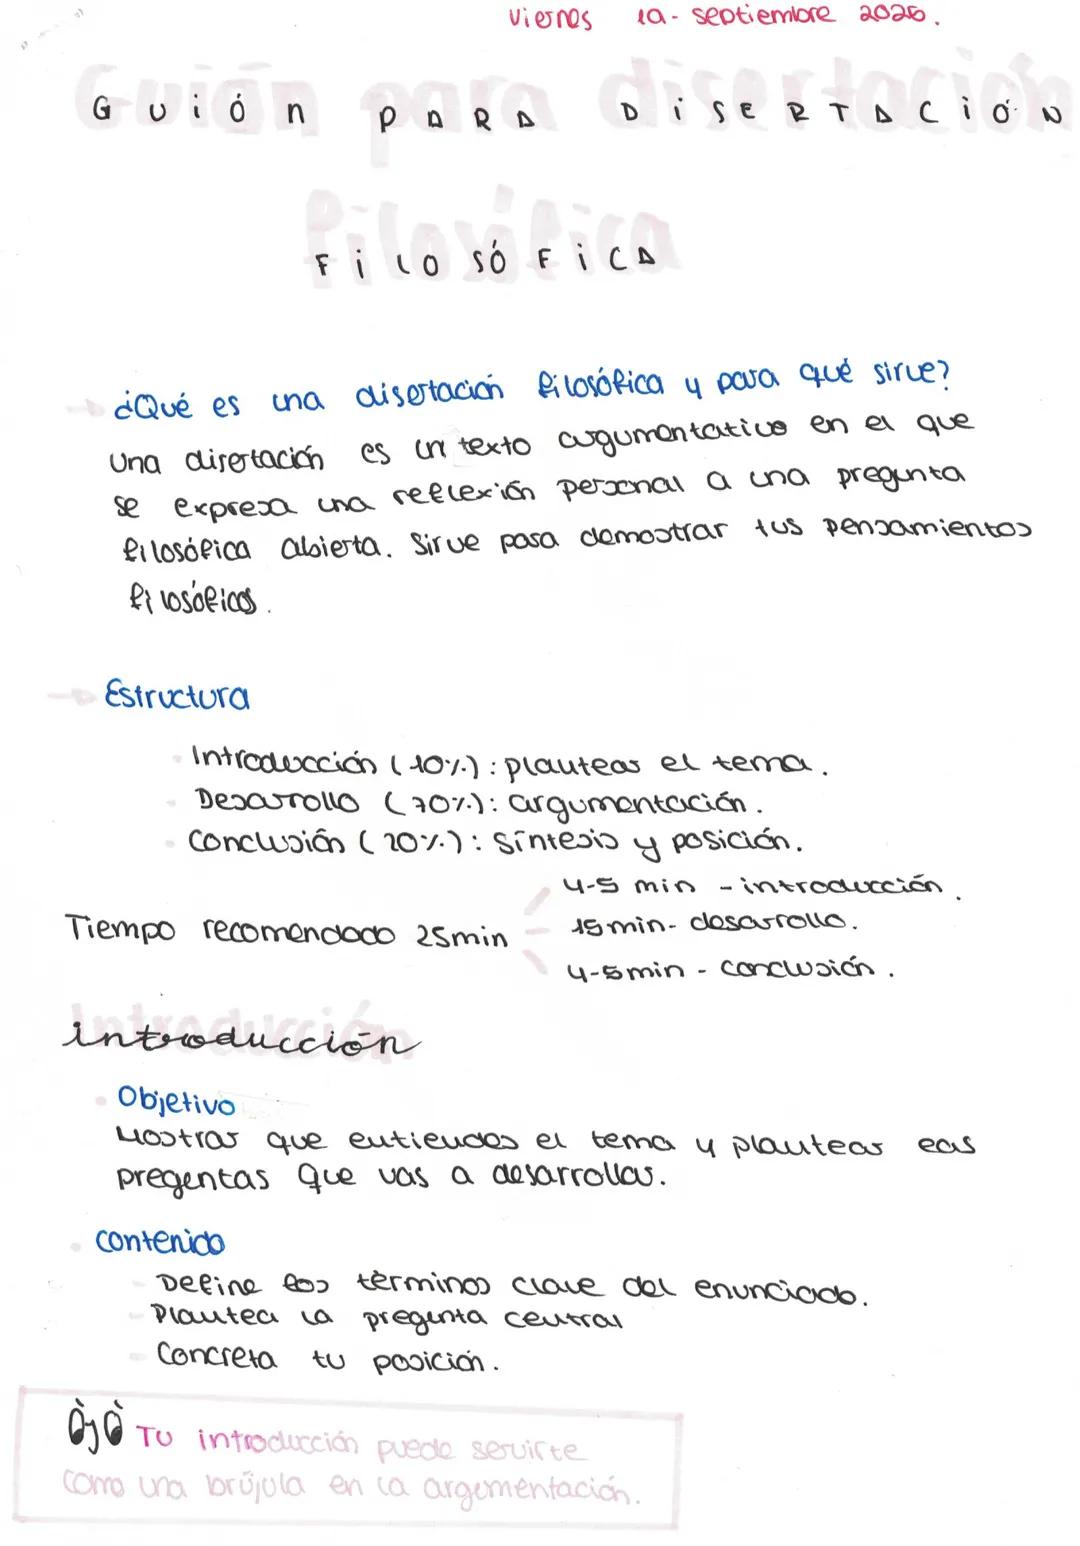 Viernes 19 - septiembre 2025.
Guión para disertación
filosófica
¿Qué es una disertación filosófica y para qué sirve?
Una disertación es un texto argumentativo en el que
se expresa una reflexión personal a una pregunta
filosófica abierta. Sirve para demostrar tus pensamientos
filosóficos.
Estructura
Introducción (10%): plantear el tema.
Desarrollo (70%): argumentación.
Conclusión (20%): síntesis y posición.
4-5 min - introducción.
Tiempo recomendado 25min
15min- desarrollo.
4-5min - conclusión.
introducción
Objetivo
Mostrar que entiendes el tema y plantear las
preguntas que vas a desarrollar.
contenido
Define los términos clave del enunciado.
Plantea la pregunta central
Concreta tu posición.
Ojo Tu introducción puede servirte
como una brújula en la argumentación.